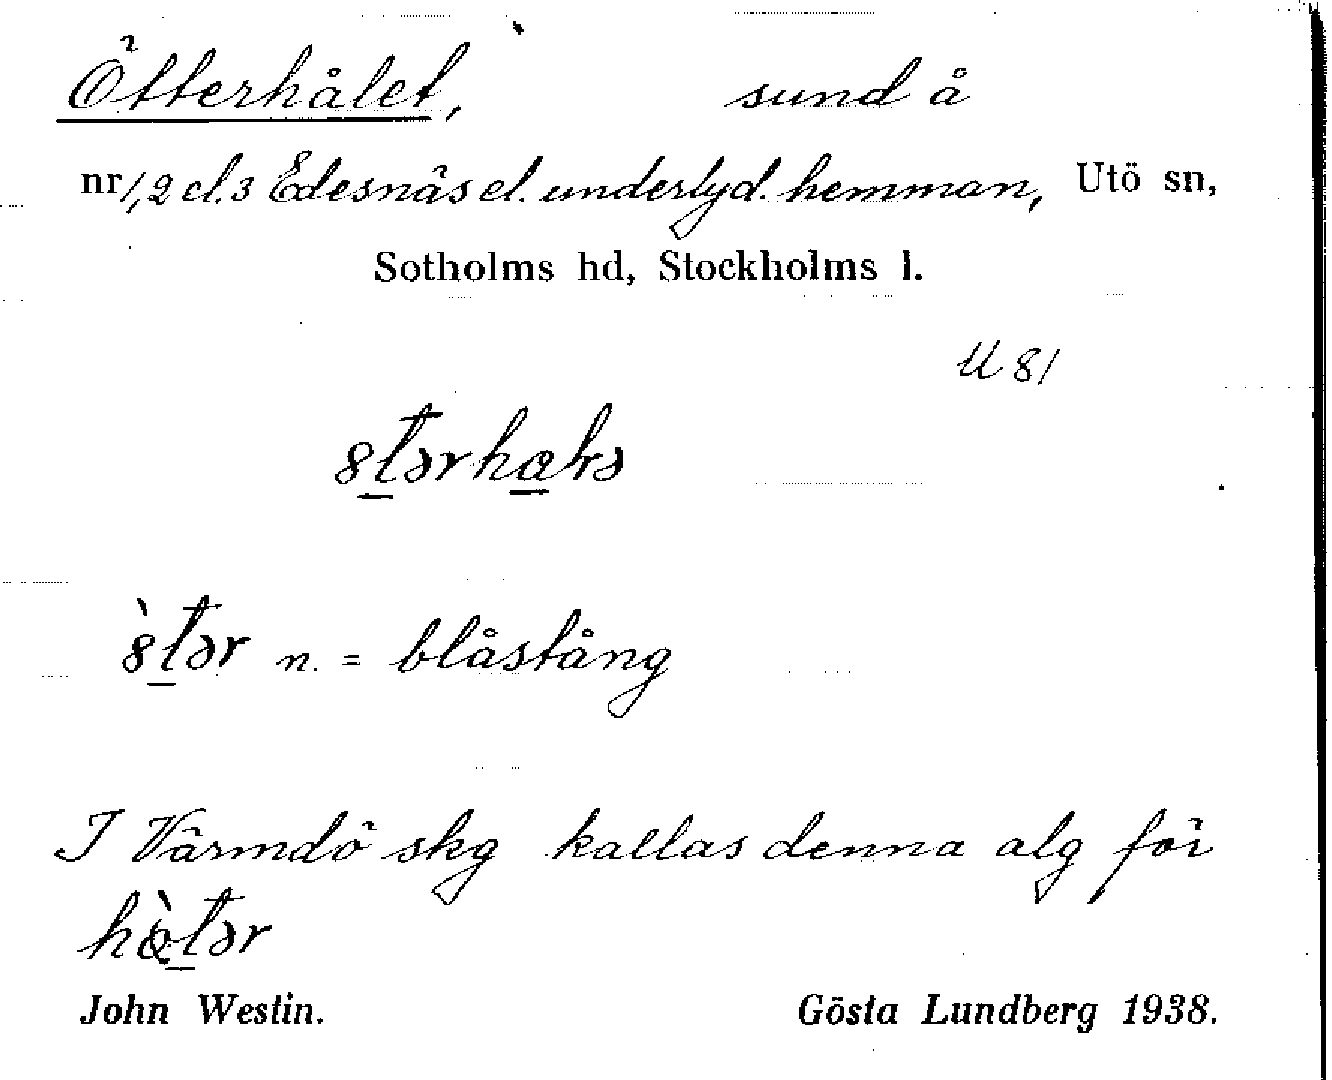 Ötterhålet, sund å
nr 1, 2 el. 3 Edesnäs el. underlyd. hemman, Utö sn,
Sotholms hd, Stockholms l.
U 81
n. = blåstång
I Värmdö skg kallas denna alg för
John Westin. Gösta Lundberg 1938.